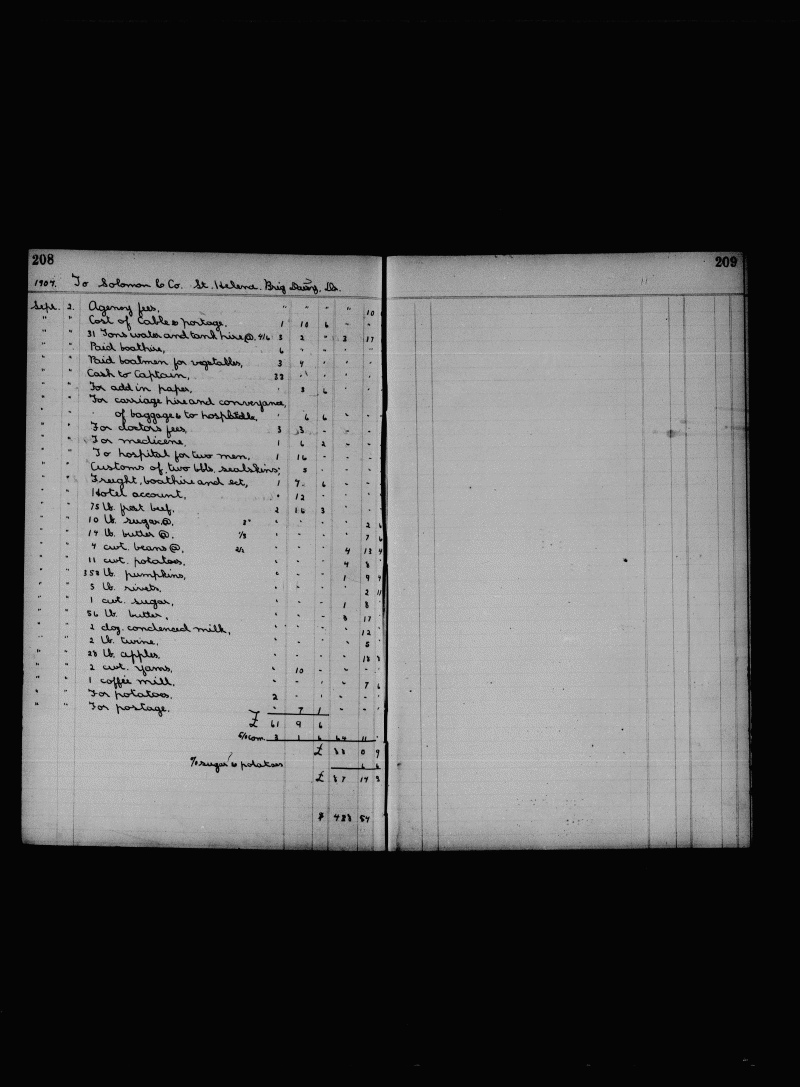 208
209
1907. To Solomon & Co. St. Helena. Brig Daisy, Dr.
Sept. 2. Agency fees, " " " " 10
" " Cost of Cable & portage, 1 10 6 " "
" " 31 Tons water and tank hire @ 4/6 3 2 " 3 17
" " Paid boathire, 6 " " " "
" " Paid boatmen for vegetables, 3 4 " " "
" " Cash to Captain, 38 " " " "
" " For add in paper, " 3 6 " "
" " For carriage hire and conveyance,
of baggage to hospital, " 6 6 " "
" " For doctors fees, 3 3 - - -
" " For medicene, 1 6 2 - -
" " To hospital for two men, 1 16 - - -
" " Customs of two bbls. sealskins, 5 - - -
" " Freight, boathire and ect, 1 7 6 - -
" " Hotel account, " 12 - - -
" " 75 lb. fresh beef, 2 16 3 - -
" " 10 lb. sugar @, 3" " - - - 2 6
" " 14 lb. butter @, " - - - 7 6
" " 4 cwt. beans @, " - - 4 13 4
" " 11 cwt. potatoes, " - - 4 8
" " 358 lb. pumpkins, " - - 1 9 4
" " 5 lb. rivets, " - - - 2 11
" " 1 cwt. sugar, " - - 1 8
" " 56 lb. butter, " - - 3 17
" " 2 doz. condenced milk, " - - " 12
" " 2 lb. twine, " - - " 5
" " 28 lb. apples, " - - " 18 8
" " 2 cwt. yams, " 10 - " - -
" " 1 coffee mill, " - " " 7 6
" " For potatoes, 2 - " " - -
" " For postage, " 7 1 " - -
£ 61 9 6
5% com. 3 1 6 64 11
£ 88 0 9
% sugar & potatoes 6 6
£ 87 14 3
$ 428 54